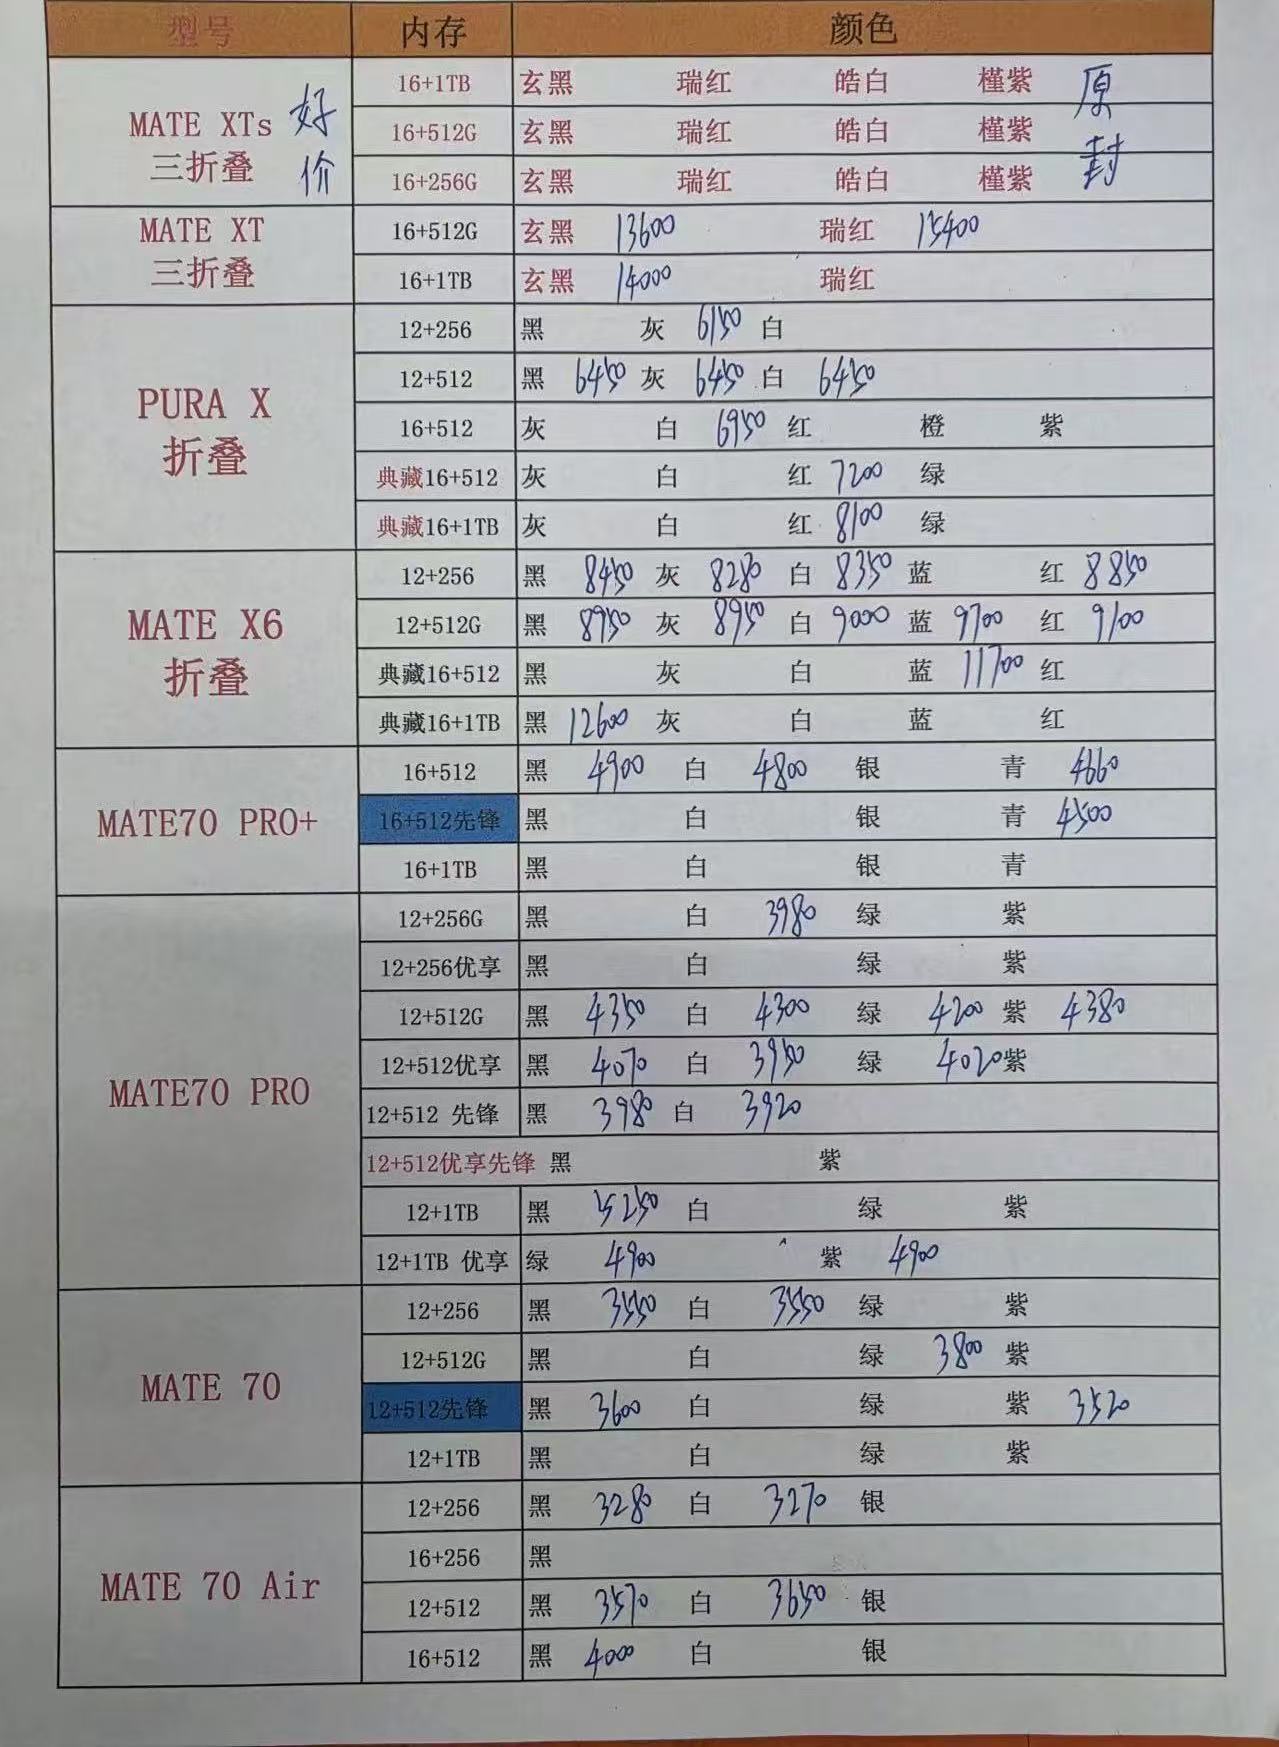 型号 内存 颜色
MATE XTs 三折叠 好价 原封
16+1TB 玄黑 瑞红 皓白 槿紫
16+512G 玄黑 瑞红 皓白 槿紫
16+256G 玄黑 瑞红 皓白 槿紫
MATE XT 三折叠
16+512G 玄黑 13600 瑞红 15400
16+1TB 玄黑 14000 瑞红
PURA X 折叠
12+256 黑 灰 6150 白
12+512 黑 6450 灰 6450 白 6450
16+512 灰 白 6950 红 橙 紫
典藏16+512 灰 白 红 7200 绿
典藏16+1TB 灰 白 红 8100 绿
MATE X6 折叠
12+256 黑 8450 灰 8280 白 8350 蓝 红 8850
12+512G 黑 8950 灰 8950 白 9000 蓝 9700 红 9100
典藏16+512 黑 灰 白 蓝 11700 红
典藏16+1TB 黑 12600 灰 白 蓝 红
MATE70 PRO+
16+512 黑 4900 白 4800 银 青 4660
16+512先锋 黑 白 银 青 4500
16+1TB 黑 白 银 青
MATE70 PRO
12+256G 黑 白 3980 绿 紫
12+256优享 黑 白 绿 紫
12+512G 黑 4350 白 4300 绿 4200 紫 4380
12+512优享 黑 4070 白 3950 绿 4020 紫
12+512 先锋 黑 3980 白 3920
12+512优享先锋 黑 紫
12+1TB 黑 5250 白 绿 紫
12+1TB 优享 绿 4900 紫 4900
MATE 70
12+256 黑 3550 白 3550 绿 紫
12+512G 黑 白 绿 3800 紫
12+512先锋 黑 3600 白 绿 紫 3520
12+1TB 黑 白 绿 紫
MATE 70 Air
12+256 黑 3280 白 3270 银
16+256 黑
12+512 黑 3570 白 3650 银
16+512 黑 4000 白 银